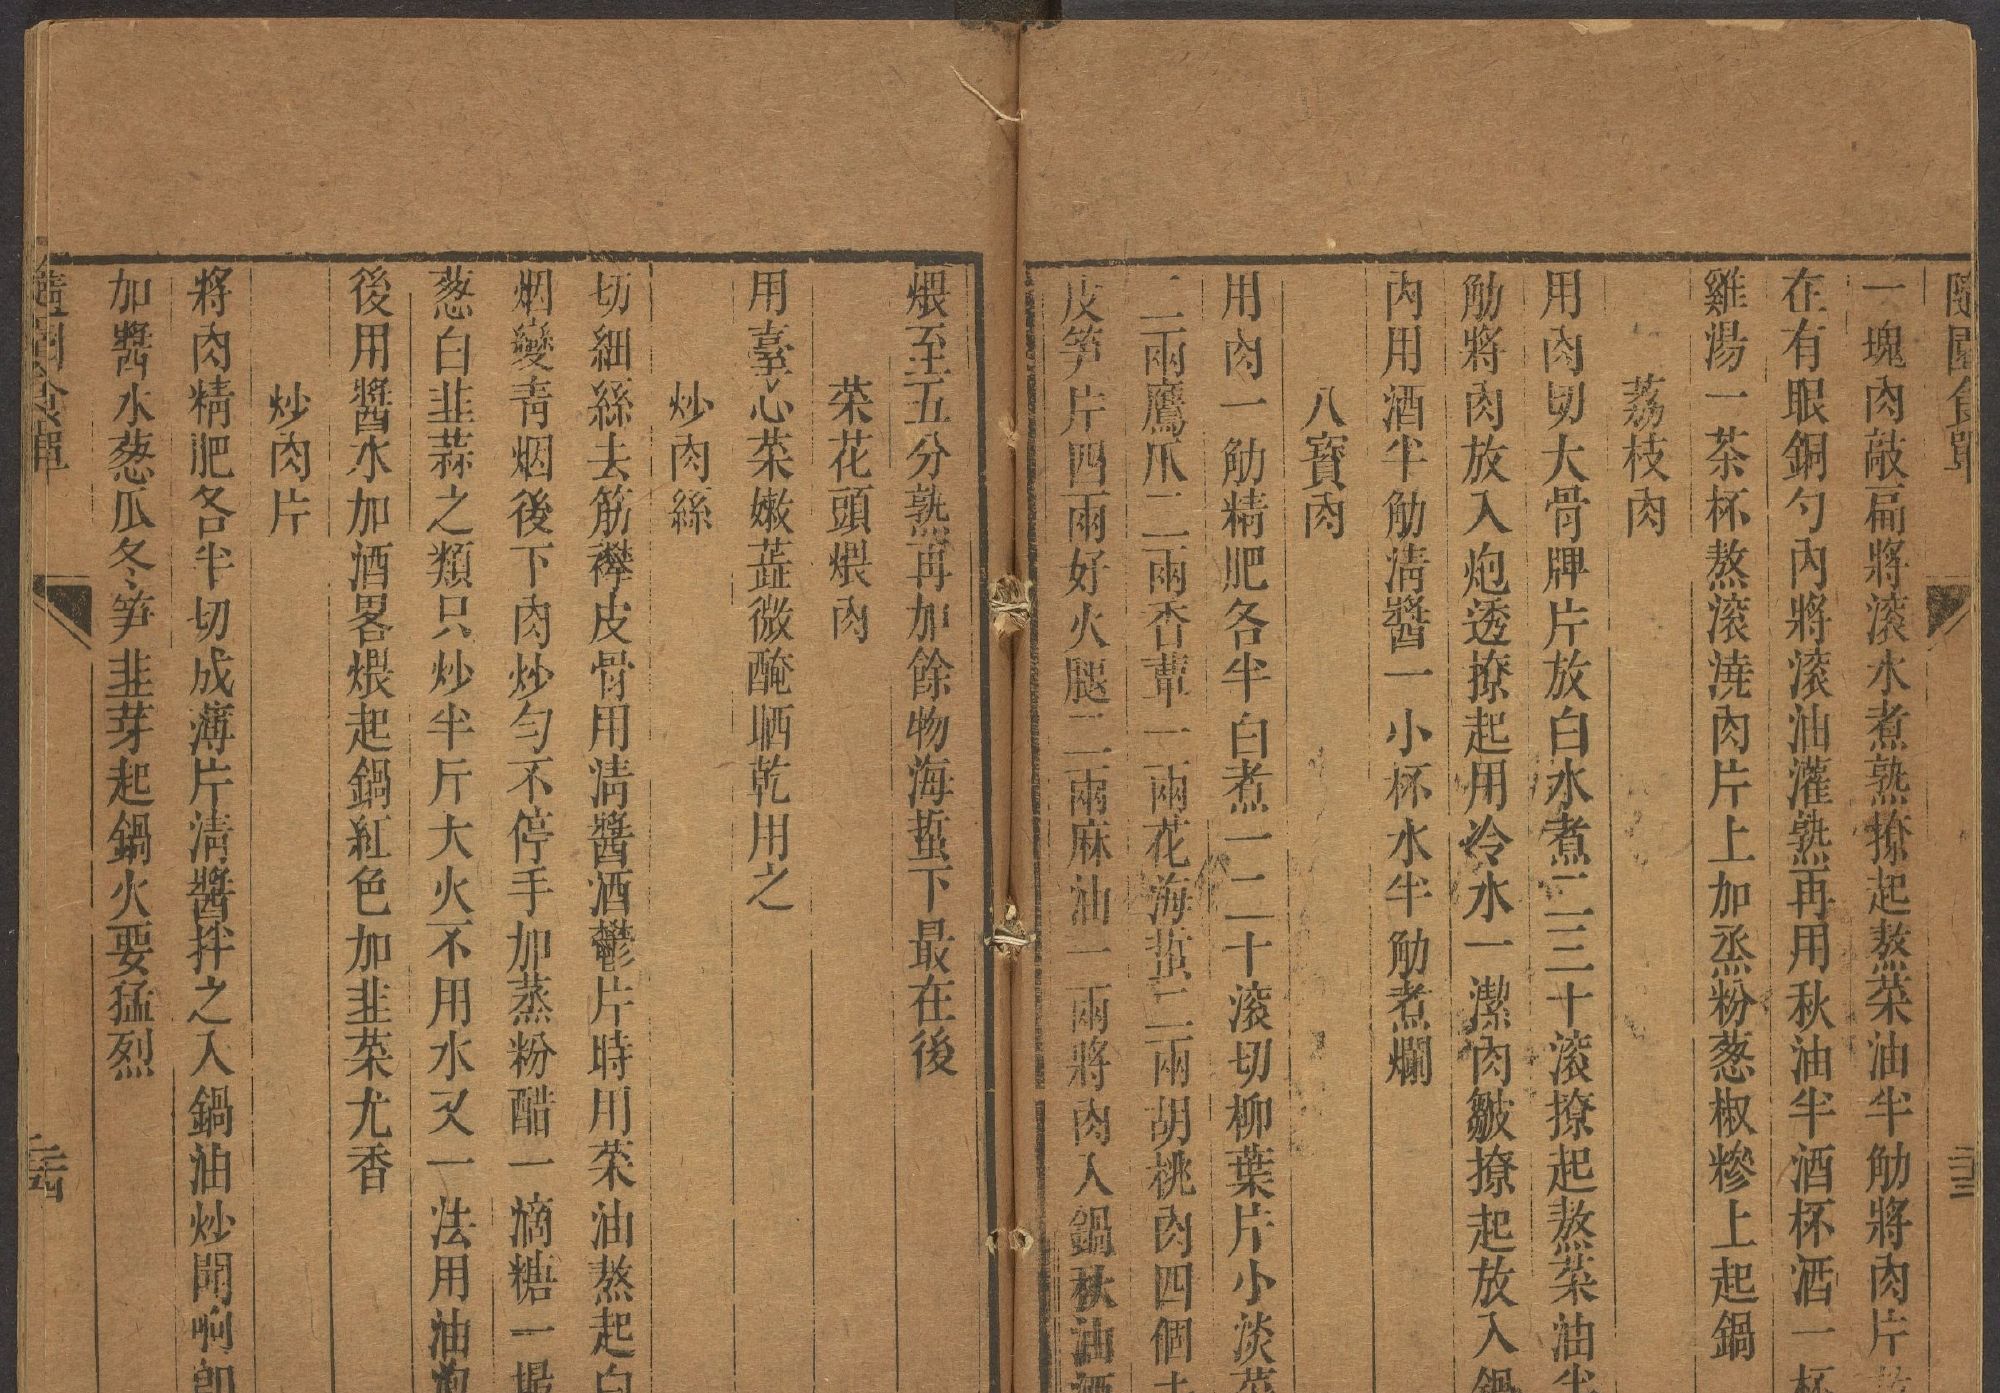 隨園食單
三三
一塊肉敲扁將滾水煮熟撩起熬菜油半觔將肉片
在有眼銅勺內將滾油灌熟再用秋油半酒杯酒一杯
雞湯一茶杯熬滾澆肉片上加蒸粉葱椒糝上起鍋
荔枝肉
用肉切大骨牌片放白水煮二三十滾撩起熬菜油半
觔將肉放入炮透撩起用冷水一潔肉皺撩起放入鍋
內用酒半觔淸醬一小杯水半觔煮爛
八寶肉
用肉一觔精肥各半白煮一二十滾切柳葉片小淡菜
二兩鷹爪二兩香蕈一兩花海蜇二兩胡桃肉四個去
皮笋片四兩好火腿二兩麻油一兩將肉入鍋秋油酒
煨至五分熟再加餘物海蜇下最在後
菜花頭煨肉
用臺心菜嫩蕋微醃晒乾用之
炒肉絲
切細絲去筋襻皮骨用淸醬酒鬱片時用菜油熬起白
烟變靑烟後下肉炒勻不停手加蒸粉醋一滴糖一撮
葱白韭蒜之類只炒半斤大火不用水又一法用油泡
後用醬水加酒畧煨起鍋紅色加韭菜尤香
炒肉片
將肉精肥各半切成薄片淸醬拌之入鍋油炒聞响卽
加醬水葱瓜冬笋韭芽起鍋火要猛烈
隨園食單
三四